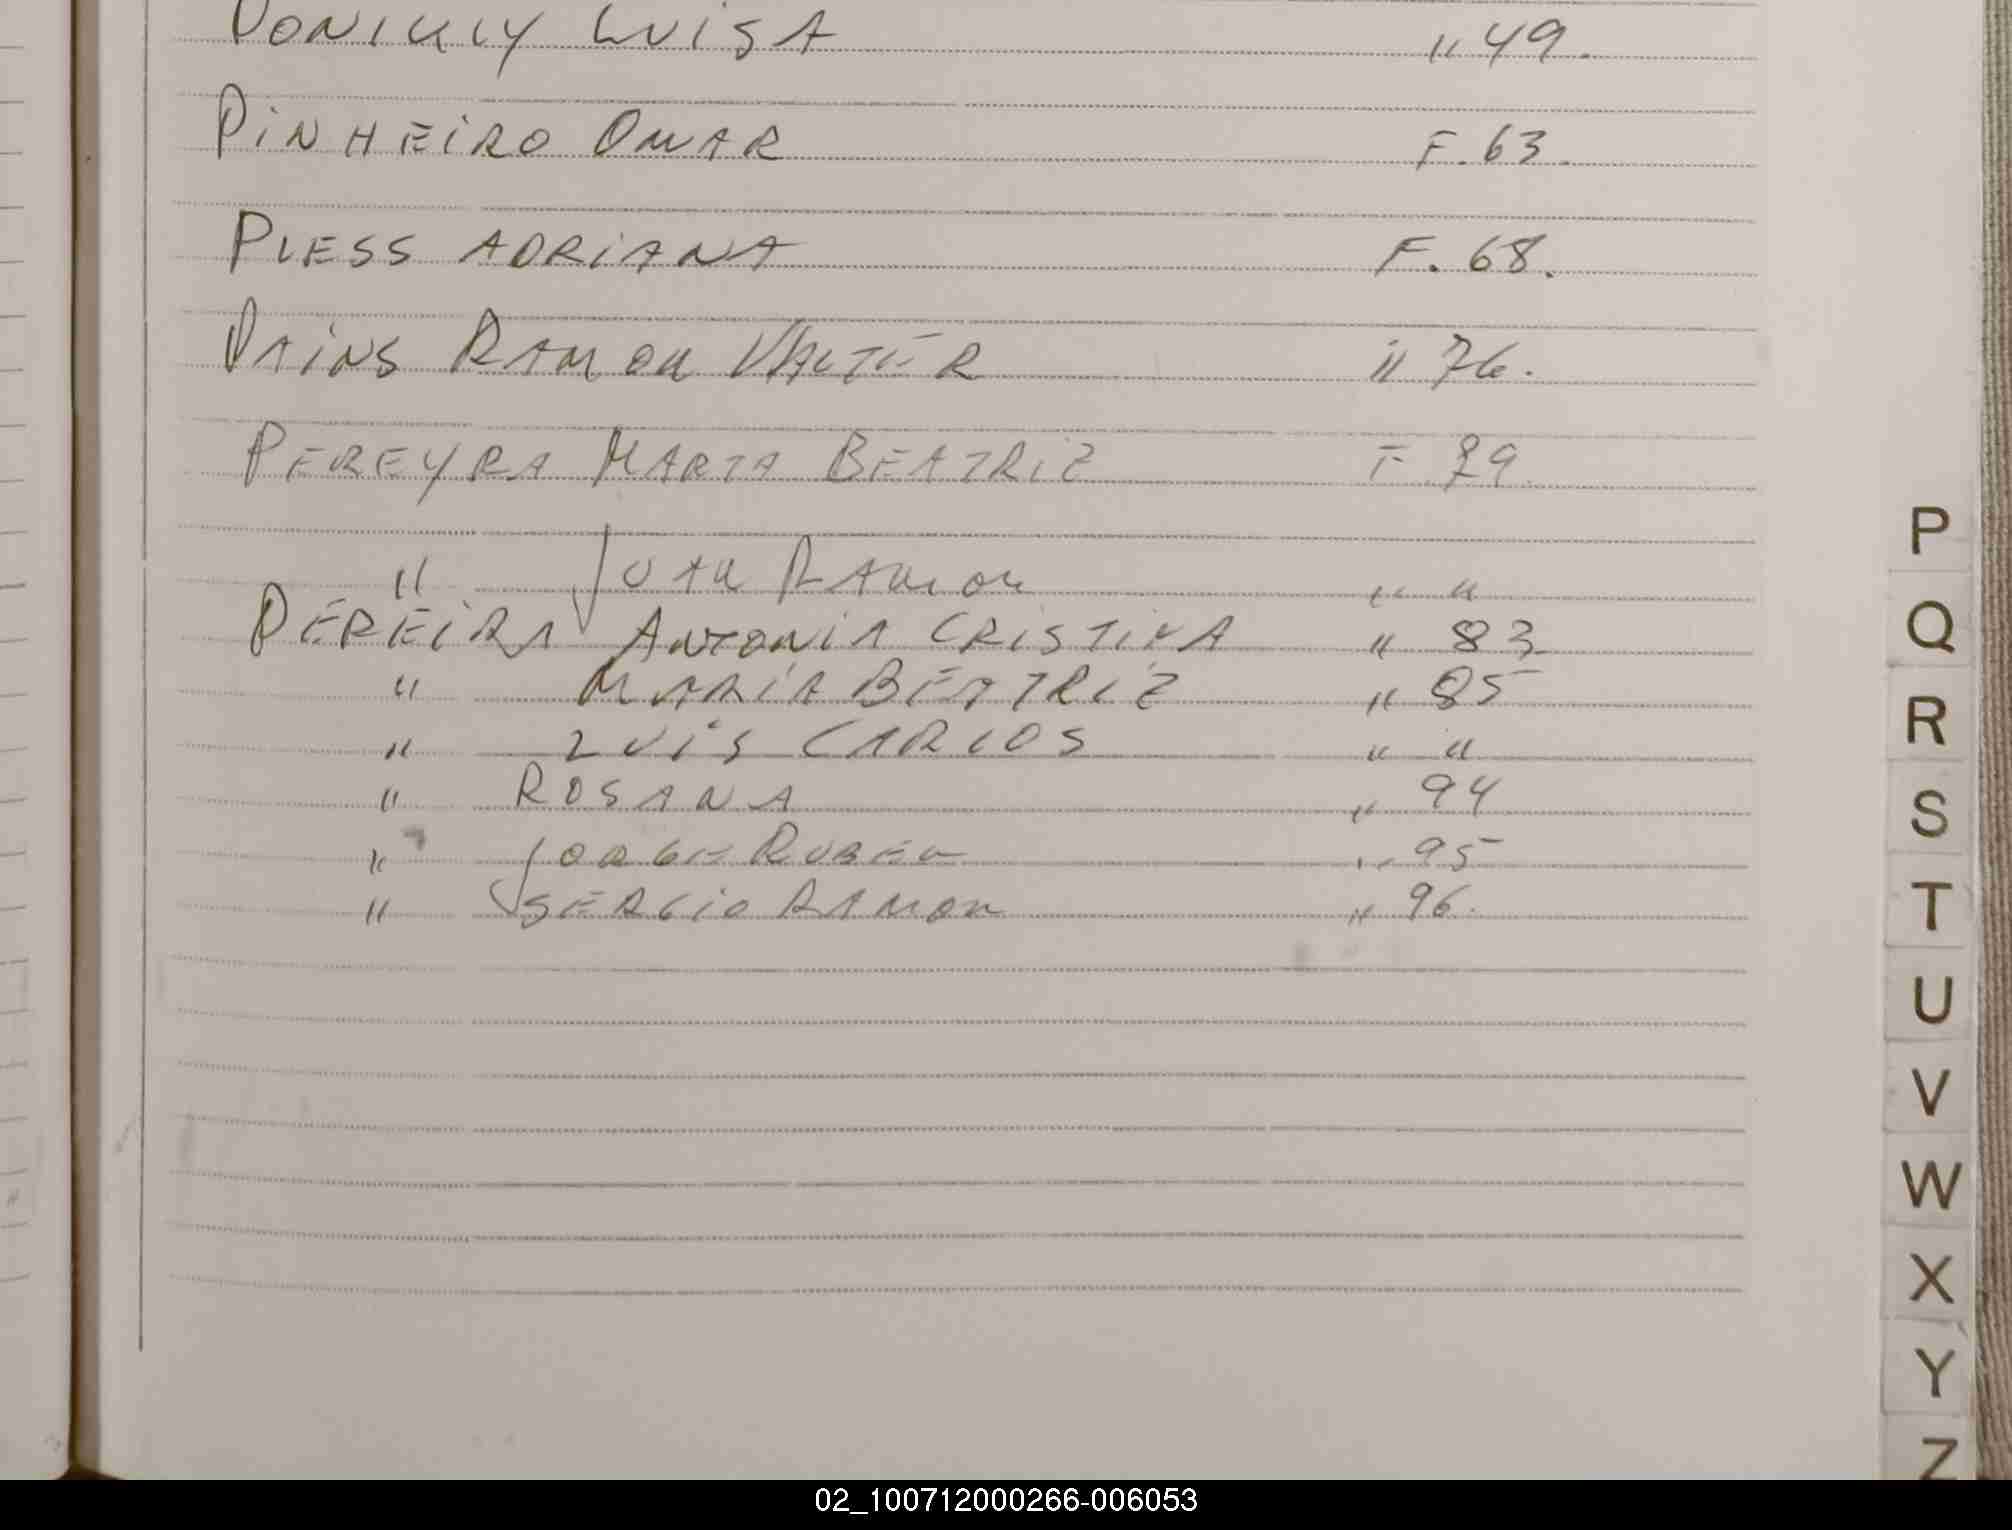 PONIULY LUISA " 49.
PINHEIRO OMAR F. 63.
PLESS ADRIANA F. 68.
PAINS RAMON VALTER " 76.
PEREYRA MARTA BEATRIZ F 79.
" JUAN RAMON " "
PEREIRA ANTONIA CRISTINA " 83
" MARÍA BEATRIZ " 85
" LUIS CARLOS " "
" ROSANA " 94
" JORGE RUBEN " 95
" SERGIO RAMON " 96.
P
Q
R
S
T
U
V
W
X
Y
Z
02_100712000266-006053